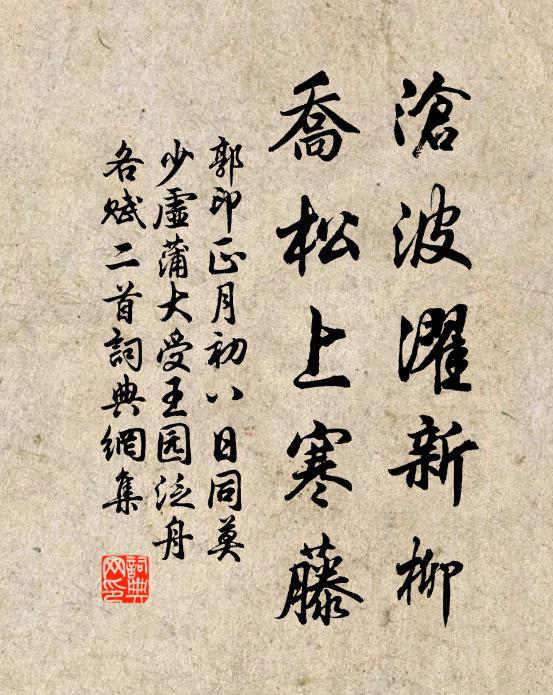 滄波濯新柳
喬松上寒藤
郭印正月初八日同莫
少虛蒲大受王园泛舟
各赋二首詞典網集
詞典网印